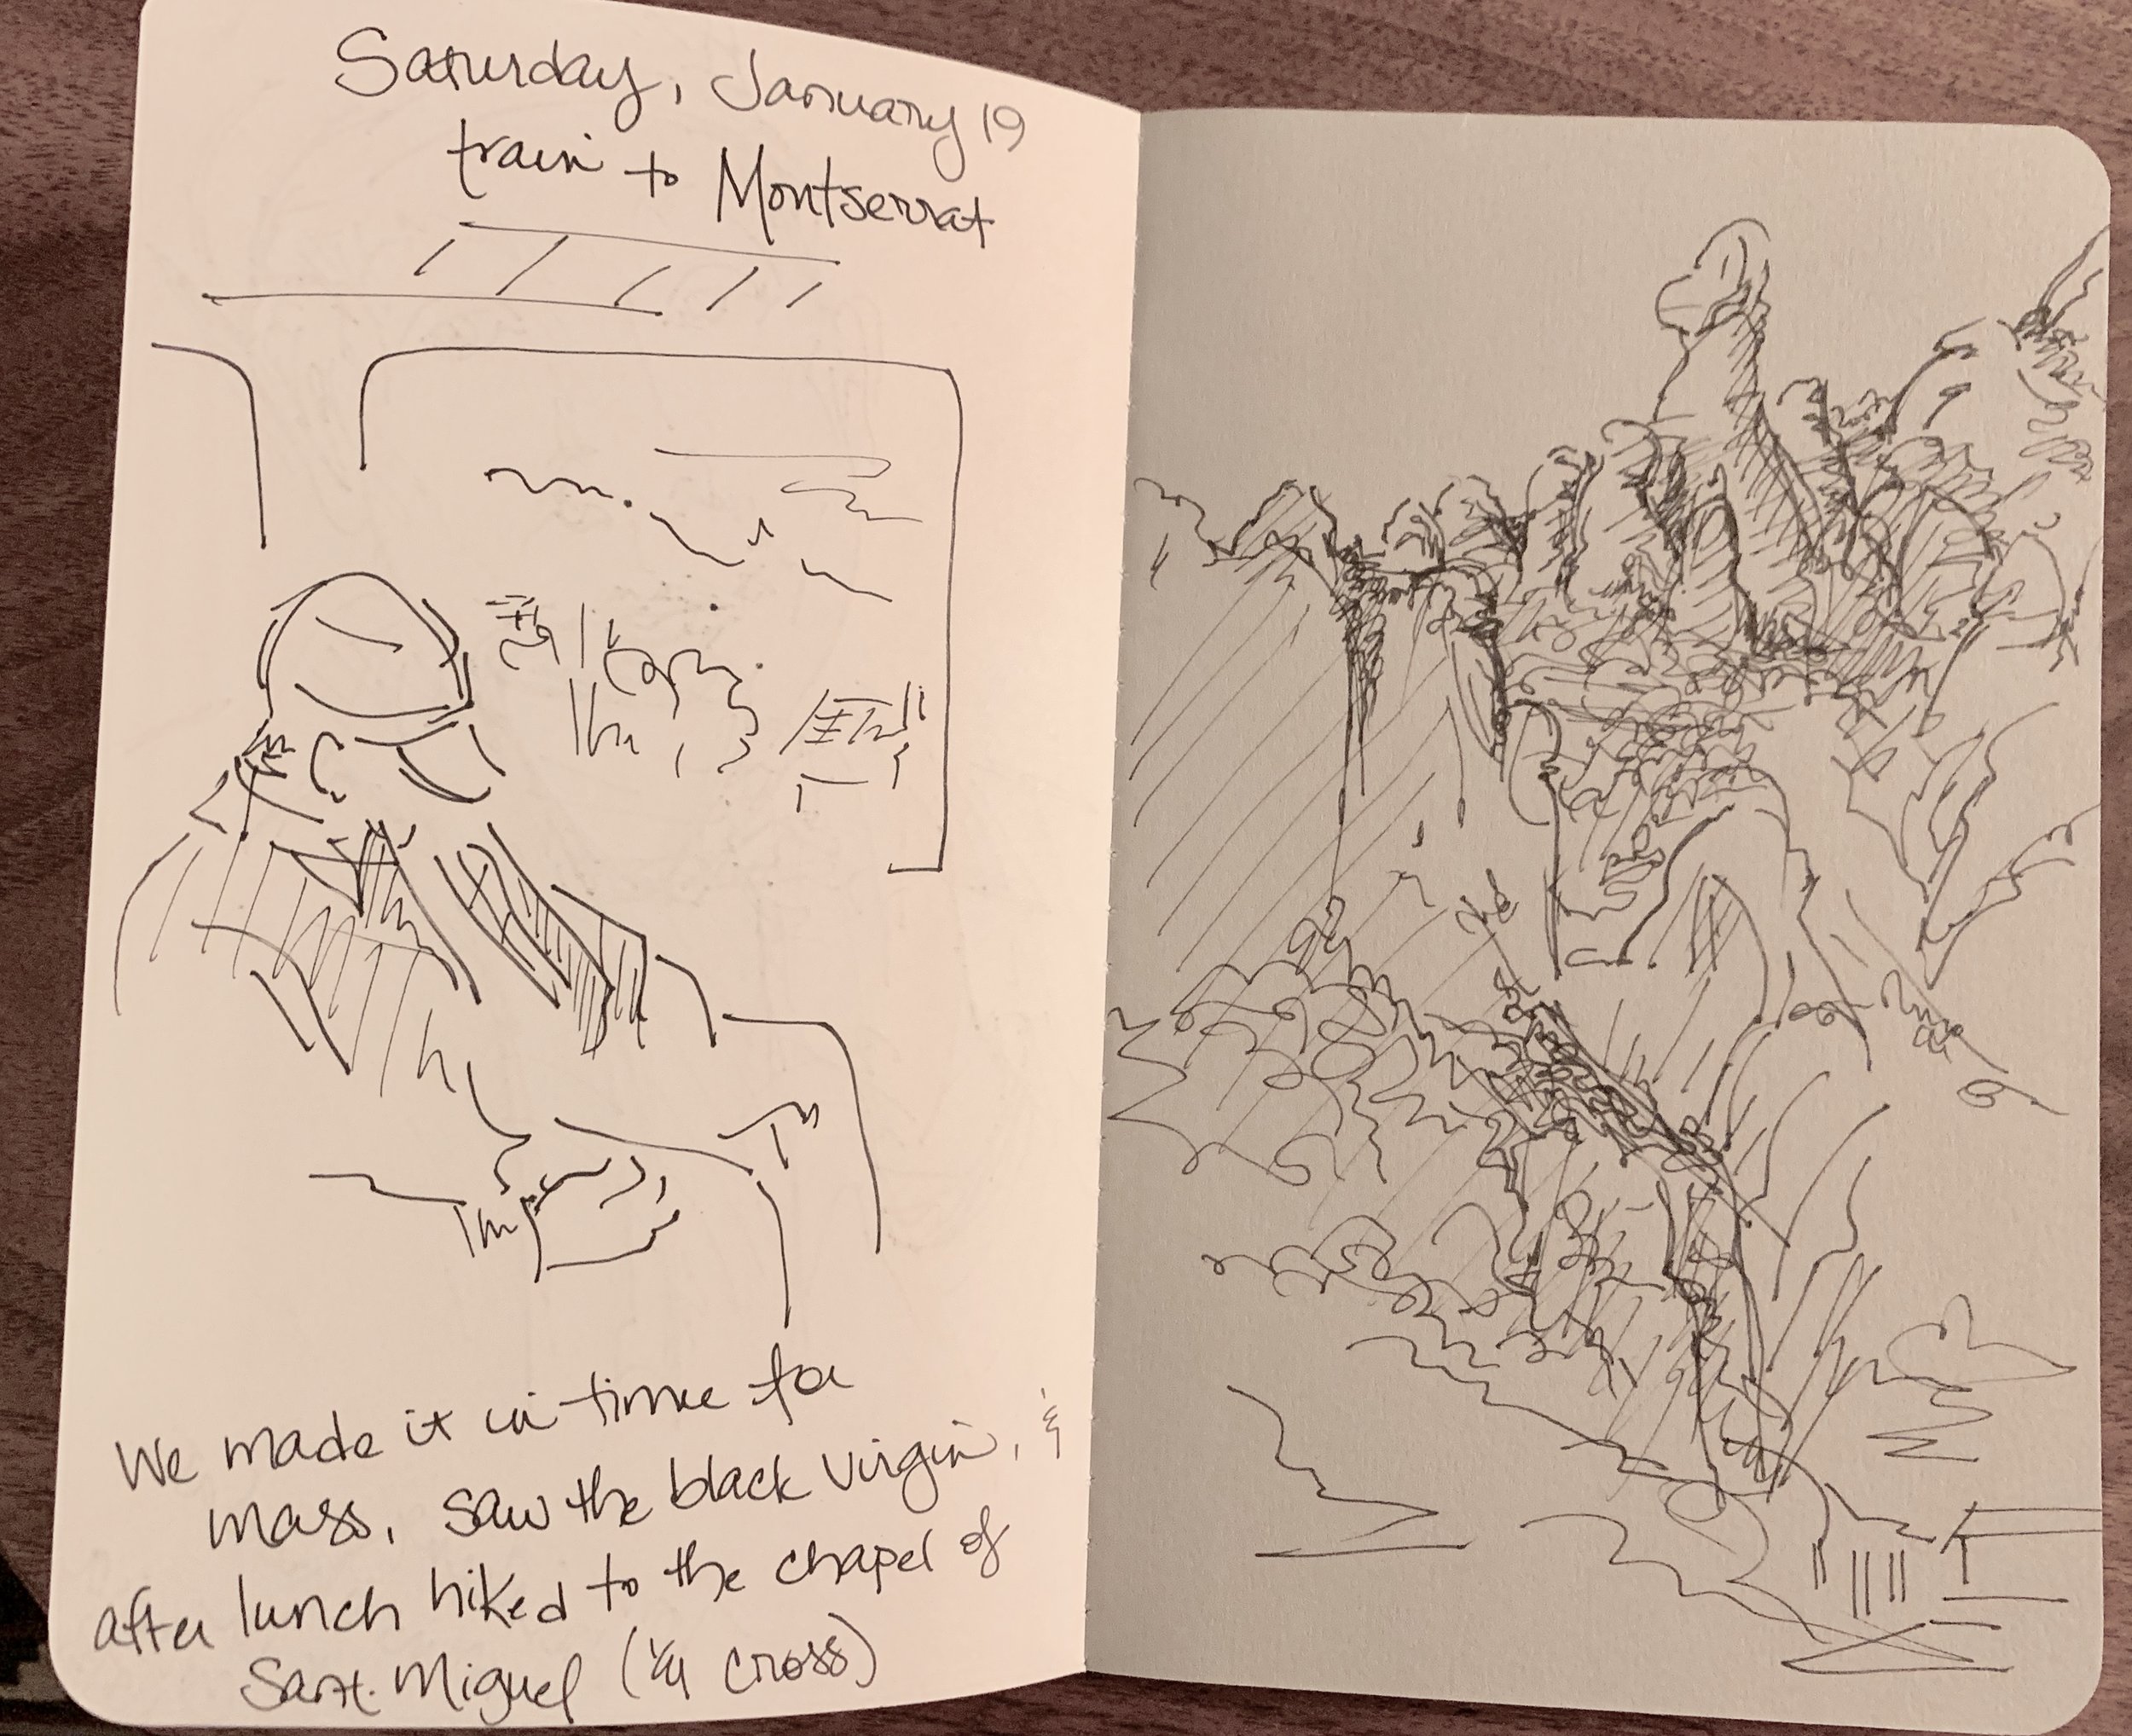 Saturday, January 19
train to Montserrat
We made it in time for
mass, saw the black virgin, &
after lunch hiked to the chapel of
Sant. Miguel ( cross)